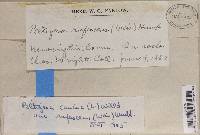 HERB. W. G. FARLOW.
Peltigera rufescens (Weis) Humb
Newington, Conn. On rocks
Chas. Wright Coll. June 9, 1882
Peltigera canina (L.) Willd
var. rufescens (Weis) Mudd.